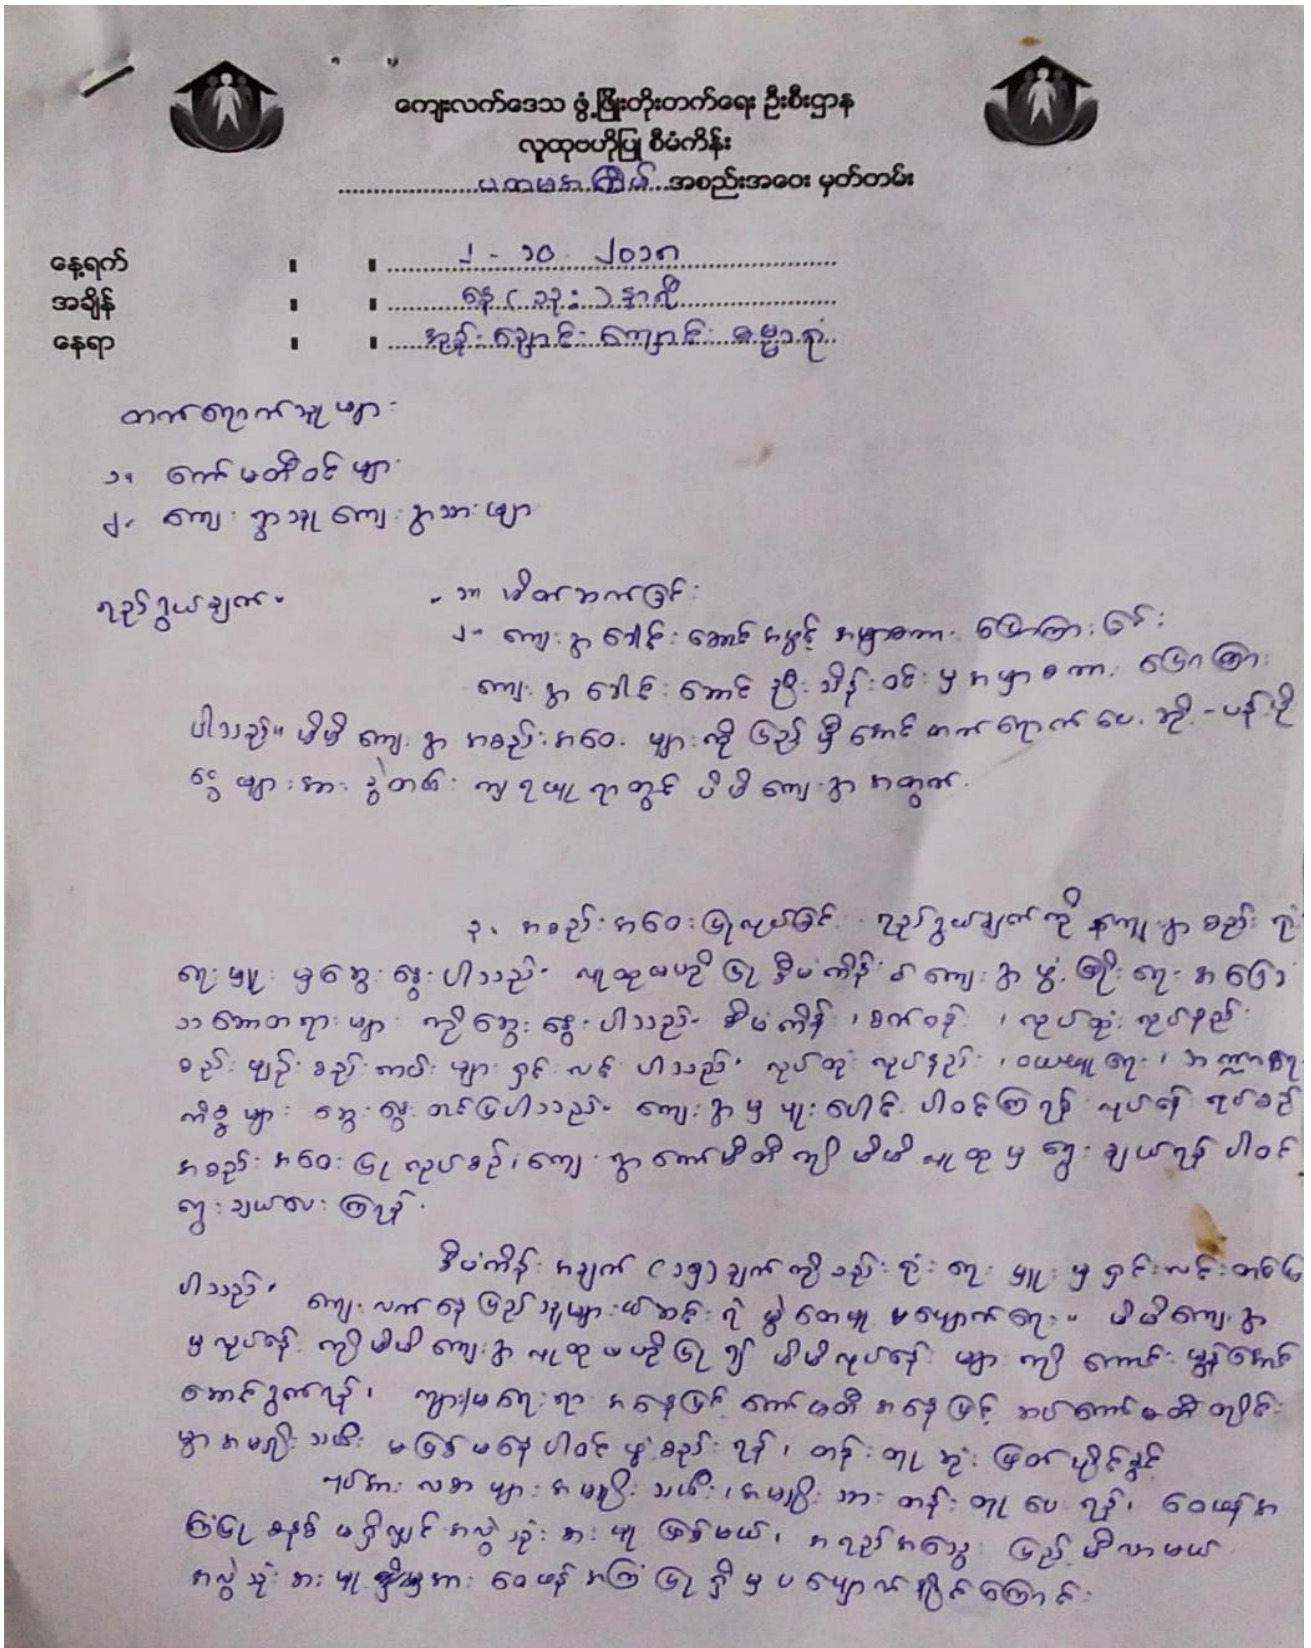 ကျေးလက်ဒေသ ဖွံ့ဖြိုးတိုးတက်ရေး ဦးစီးဌာန
လူထုဗဟိုပြု စီမံကိန်း
ပထမအကြိမ် အစည်းအဝေး မှတ်တမ်း
နေ့ရက် : : ၂ - ၁၀ ၂၀၁၈
အချိန် : : နေ့ ( ၁၃း ) နာရီ
နေရာ : : အုန်းချောင်း ကျောင်း ဓမ္မာရုံ
တက်ရောက်သူများ -
၁။ ကော်မတီဝင်များ
၂။ ကျေးရွာသူ ကျေးရွာသားများ
ရည်ရွယ်ချက်။ - ၁။ မိတ်ဆက်ခြင်း
၂။ ကျေးရွာခေါင်းဆောင်အဖွင့် အမှာစကား ပြောကြားခြင်း
ကျေးရွာခေါင်းဆောင် ဦးသိန်းဝင်းမှ အမှာစကား ပြောကြား
ပါသည်။ မိမိကျေးရွာ အစည်းအဝေးများကို ပြည့်မှီအောင် တက်ရောက်ပေး
ငွေများအား ခွဲတမ်းကျ ရယူရာတွင် မိမိကျေးရွာအတွက်
၃။ အစည်းအဝေးပြုလုပ်ခြင်း ရည်ရွယ်ချက်ကို ကျေးရွာစည်းရုံး
ရေးမှူးမှ ဆွေးနွေးပါသည်။ လူထုဗဟိုပြုစီမံကိန်း ကျေးရွာဖွံ့ဖြိုးရေး
သဘောတရားများကို ဆွေးနွေးပါသည်။ စီမံကိန်း ၊ စက်ဝန်း ၊ လုပ်ထုံးလုပ်နည်း
စည်းမျဉ်းစည်းကမ်းများ ရှင်းလင်းပါသည်။ လုပ်ထုံးလုပ်နည်း ၊ ဝယ်ယူရေး ၊ ဘဏ္ဍာရေး
ကိစ္စများ ဆွေးနွေးတင်ပြပါသည်။ ကျေးရွာမှ ပူးပေါင်းပါဝင်ကြရန်
အစည်းအဝေးပြုလုပ်စဉ် ၊ ကျေးရွာကော်မတီကို မိမိလူထုမှ ရွေးချယ်ရန် ပါဝင်
ရွေးချယ်ပေးကြရန်။
စီမံကိန်း အချက် (၁၅) ချက်ကို စည်းရုံးရေးမှူးမှ ရှင်းလင်းတင်ပြ
ပါသည်။ ကျေးလက်နေပြည်သူများ ဆင်းရဲနွမ်းပါးမှု ပပျောက်ရေး။ မိမိကျေးရွာ
မှ လုပ်ငန်းကို မိမိကျေးရွာလူထုဗဟိုပြု၍ မိမိလုပ်ငန်းများကို ကောင်းမွန်အောင်
ဆောင်ရွက်ရန် ၊ ကျား/မရေးရာအနေဖြင့် ကော်မတီအနေဖြင့် ဆပ်ကော်မတီတိုင်း
မှာ အမျိုးသမီး မဖြစ်မနေပါဝင်ဖွဲ့စည်းရန် ၊ တန်းတူ ဆုံးဖြတ်ပိုင်ခွင့်
လုပ်အားလစာများ အမျိုးသမီး ၊ အမျိုးသား တန်းတူပေးရန် ၊ ဝေဖန်အ
ကြံပြုစနစ် မရှိလျှင် အလွဲသုံးစားမှု ဖြစ်မယ် ၊ အရည်အသွေး ပြည့်မီလာမယ်
အလွဲသုံးစားမှု ဝေဖန်အကြံပြုရှိမှ ပပျောက်နိုင်ကြောင်း